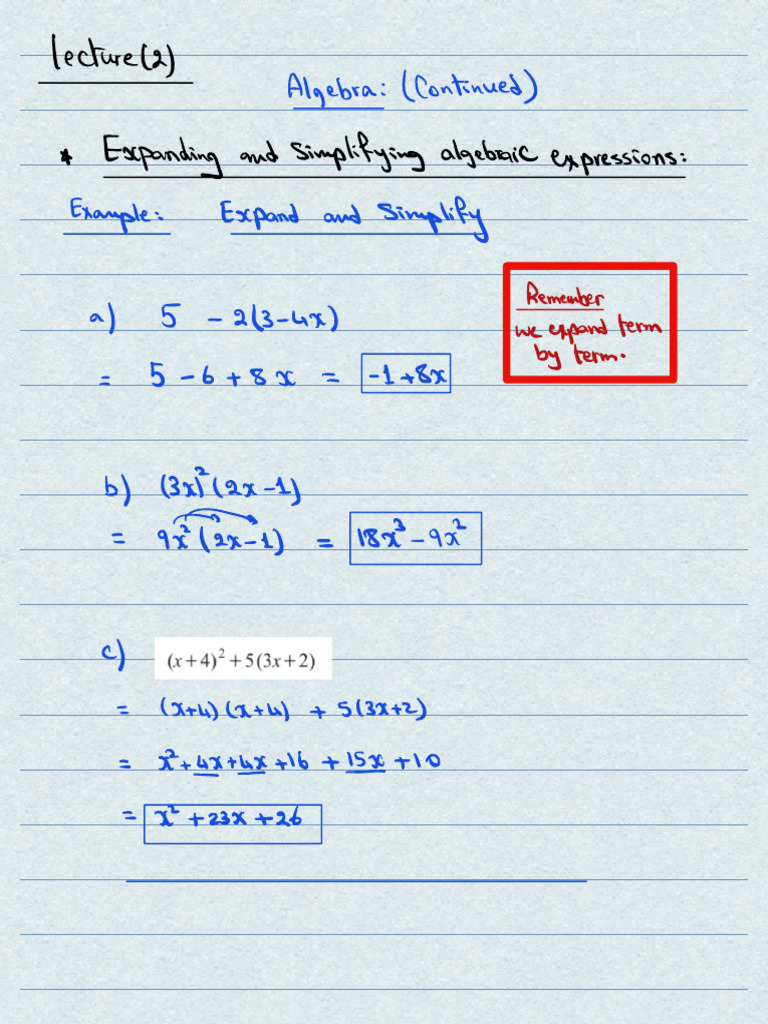 lecture (2)
Algebra: (Continued)
* Expanding and Simplifying algebraic expressions:
Example: Expand and Simplify
Remember
we expand term
by term.
a) 5 - 2(3-4x)
= 5 - 6 + 8x = -1 + 8x
b) (3x)² (2x-1)
= 9x² (2x-1) = 18x³ - 9x²
c) (x+4)² + 5(3x+2)
= (x+4)(x+4) + 5(3x+2)
= x² + 4x + 4x + 16 + 15x + 10
= x² + 23x + 26